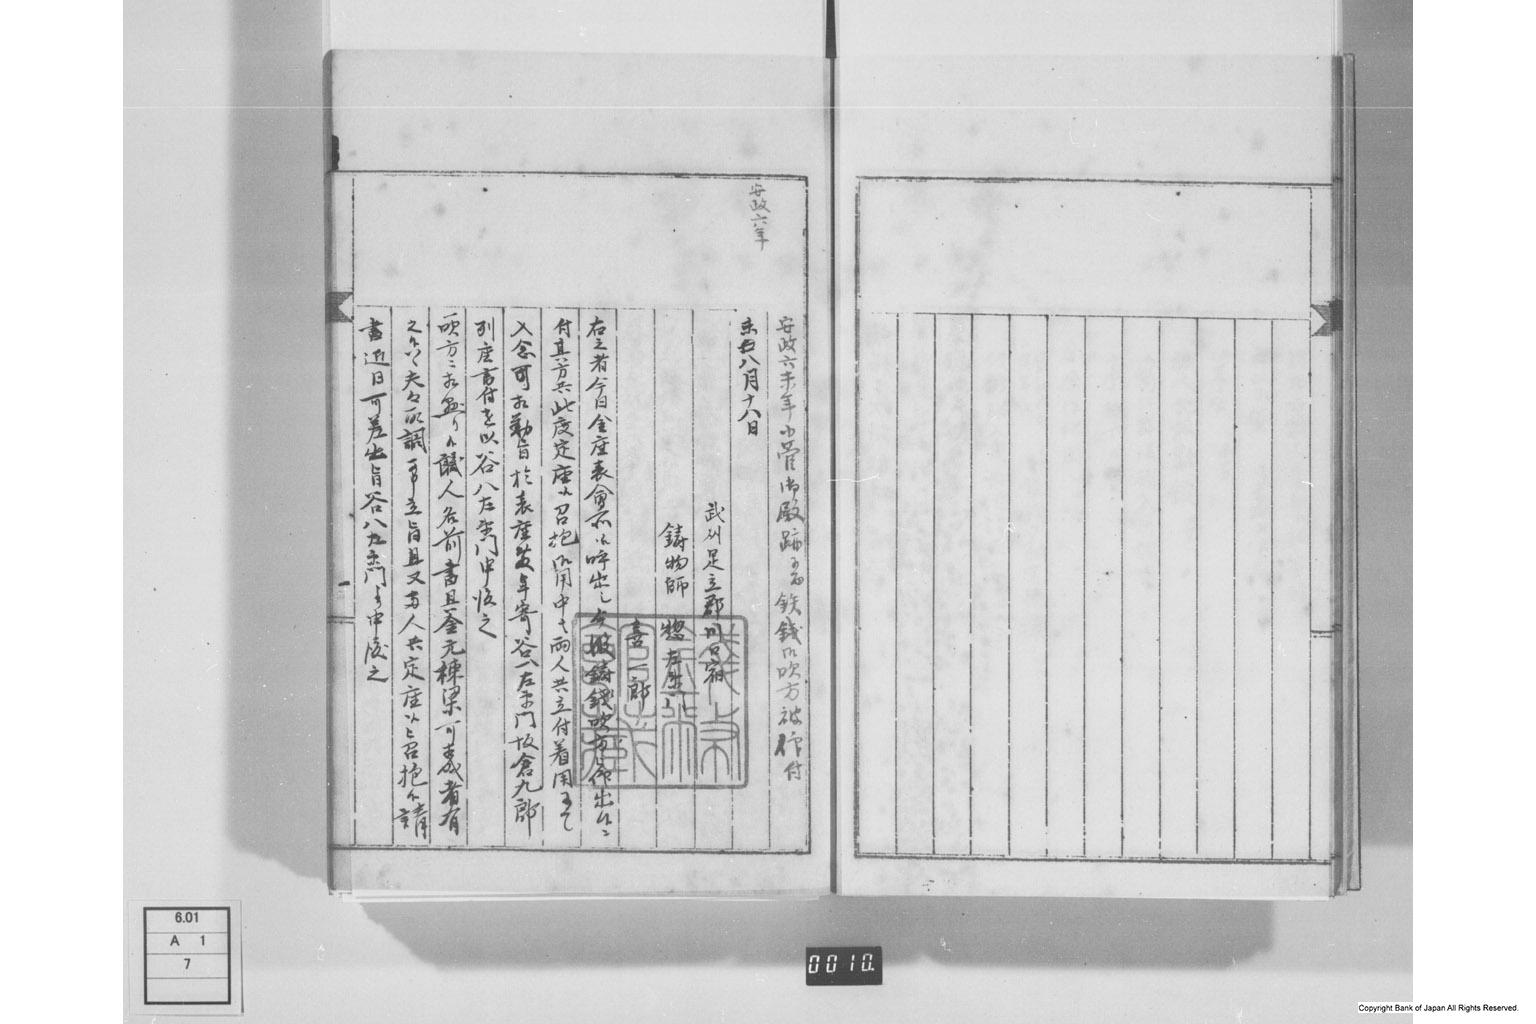 安政六年
安政六未年小菅御殿跡ニ而鉄銭御吹方被仰付
未八月十八日
武州足立郡川口宿
鋳物師 惣左衛門
喜一郎
右之者今日金座表会所江呼出し今般鋳銭吹方被仰出候ニ
付其方共此度定座江召抱御用中は両人共立付着用ニて
入念可相勤旨於表座年寄谷八左衛門坂倉九郎
列座書付を以谷八左衛門申渡之
頭方ニ相並り候職人名前書且釜元棟梁可相成者有
之候ハヽ夫々取調可申立旨且又両人共定座江召抱候請
書近日可差出旨谷八左衛門より申渡之
6.01
A 1
7
0010.
Copyright Bank of Japan All Rights Reserved.